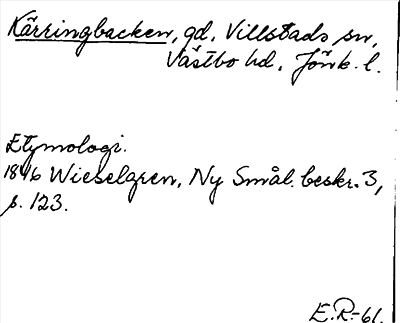 Kärringbacken, gd, Villstads sn,
Västbo hd, Jönk. l.
Etymologi.
1846 Wieselgren, Ny Smål. beskr. 3,
s. 123.
E.R.-61.